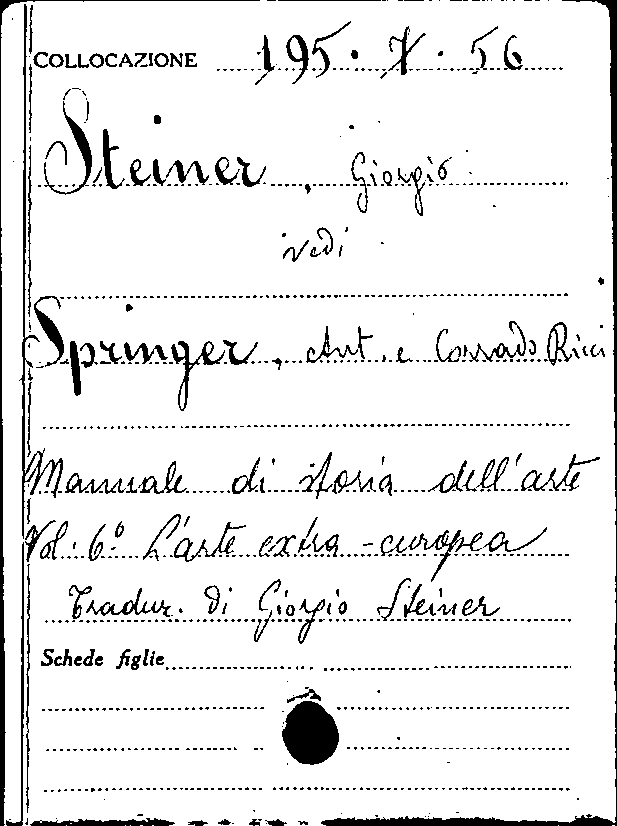 COLLOCAZIONE 195. 7. 56
Steiner, Giorgio
vedi
Springer, Ant. e Corrado Ricci
Manuale di storia dell'arte
Vol. 6º L'arte extra-europea
Tradur. di Giorgio Steiner
Schede figlie